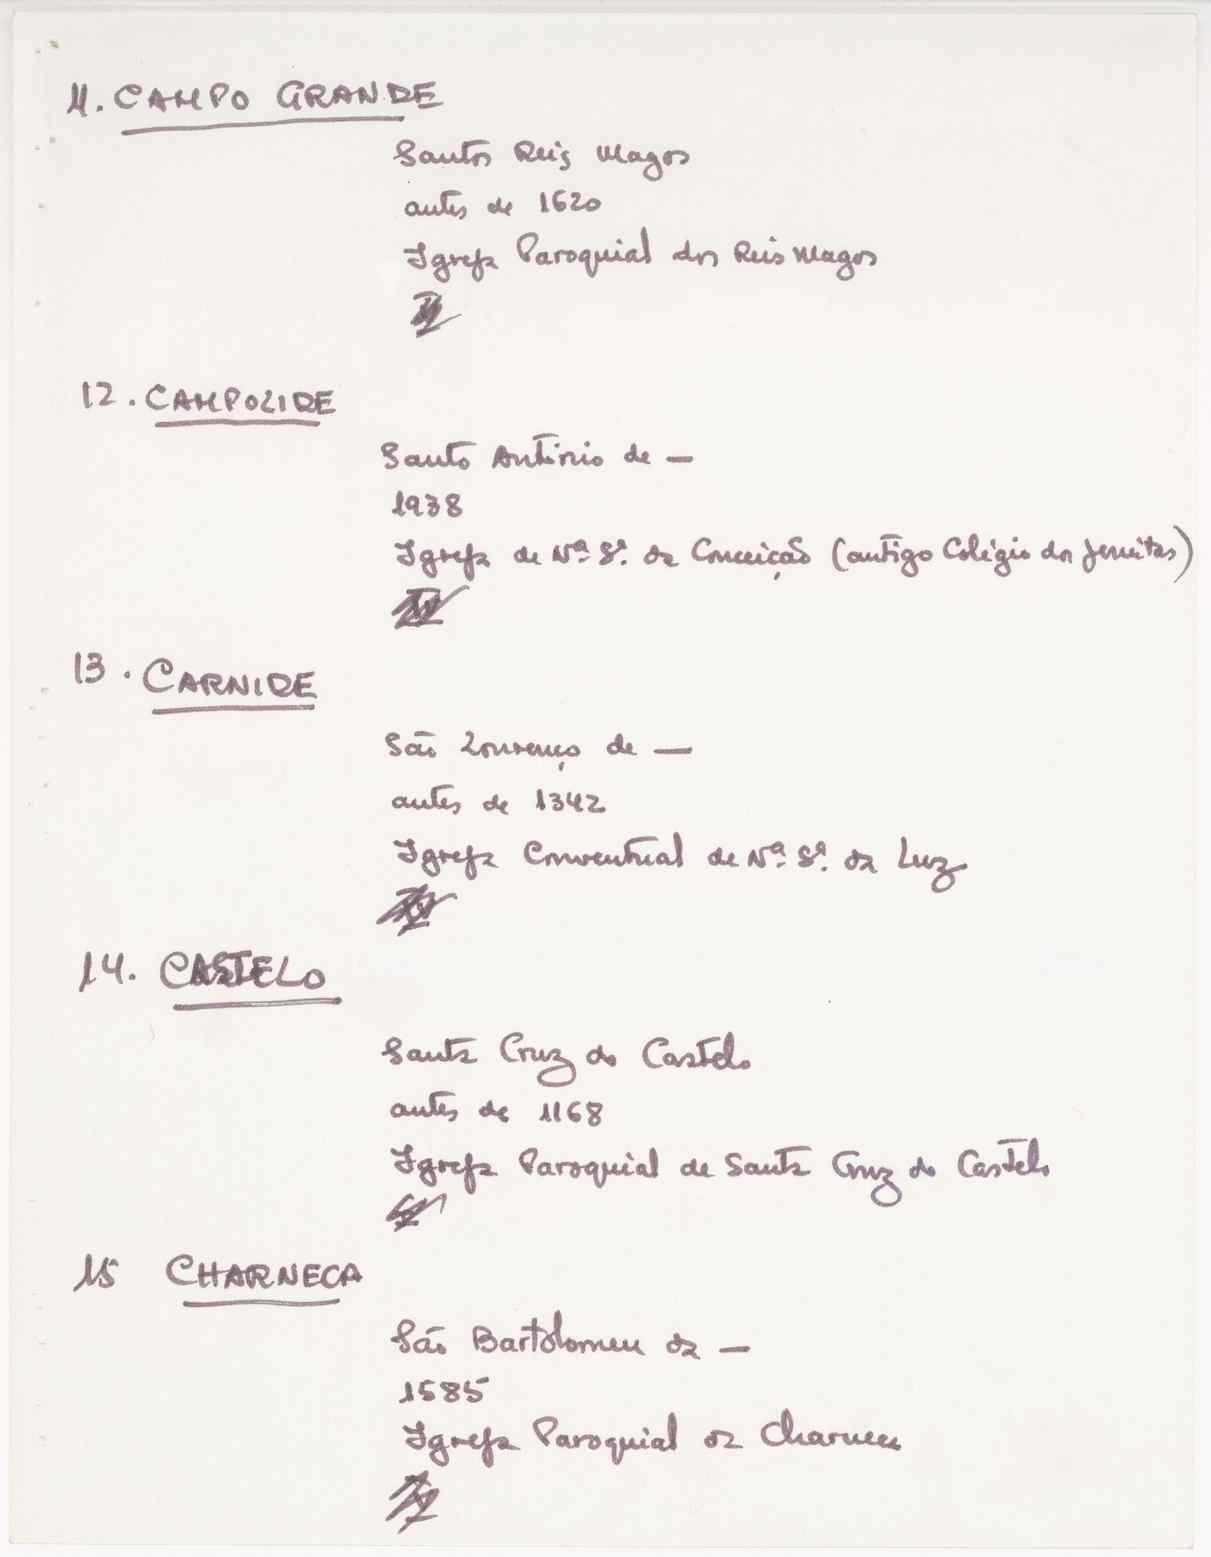 11. CAMPO GRANDE
Santos Reis Magos
antes de 1620
Igreja Paroquial dos Reis Magos
12. CAMPOLIDE
Santo António de —
1938
Igreja de Nª. Sª. da Conceição (antigo Colégio dos Jesuítas)
13. CARNIDE
São Lourenço de —
antes de 1342
Igreja Conventual de Nª. Sª. da Luz
14. CASTELO
Santa Cruz do Castelo
antes de 1168
Igreja Paroquial de Santa Cruz do Castelo
15 CHARNECA
São Bartolomeu da —
1585
Igreja Paroquial da Charneca